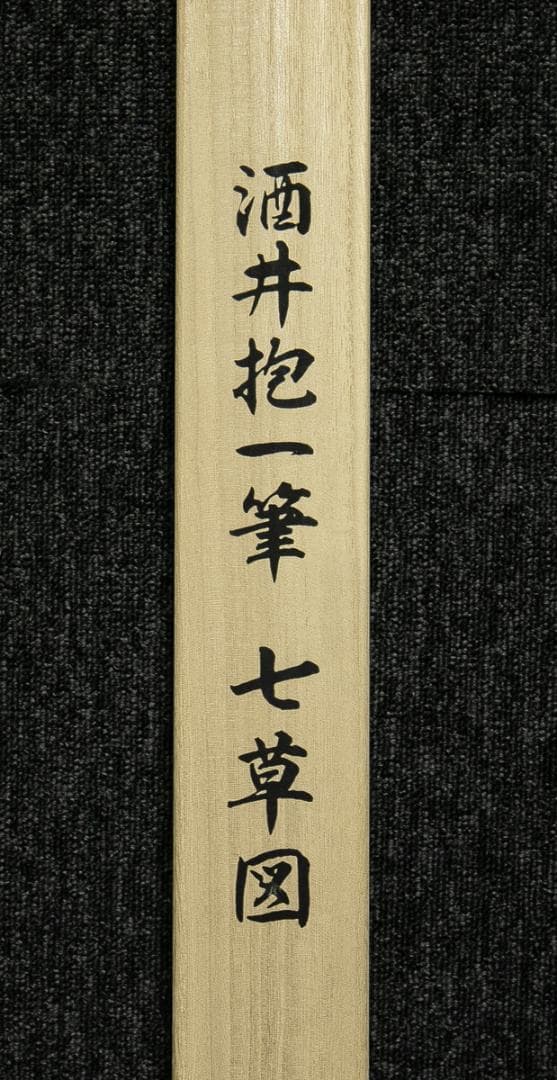 酒井抱一筆 七草図